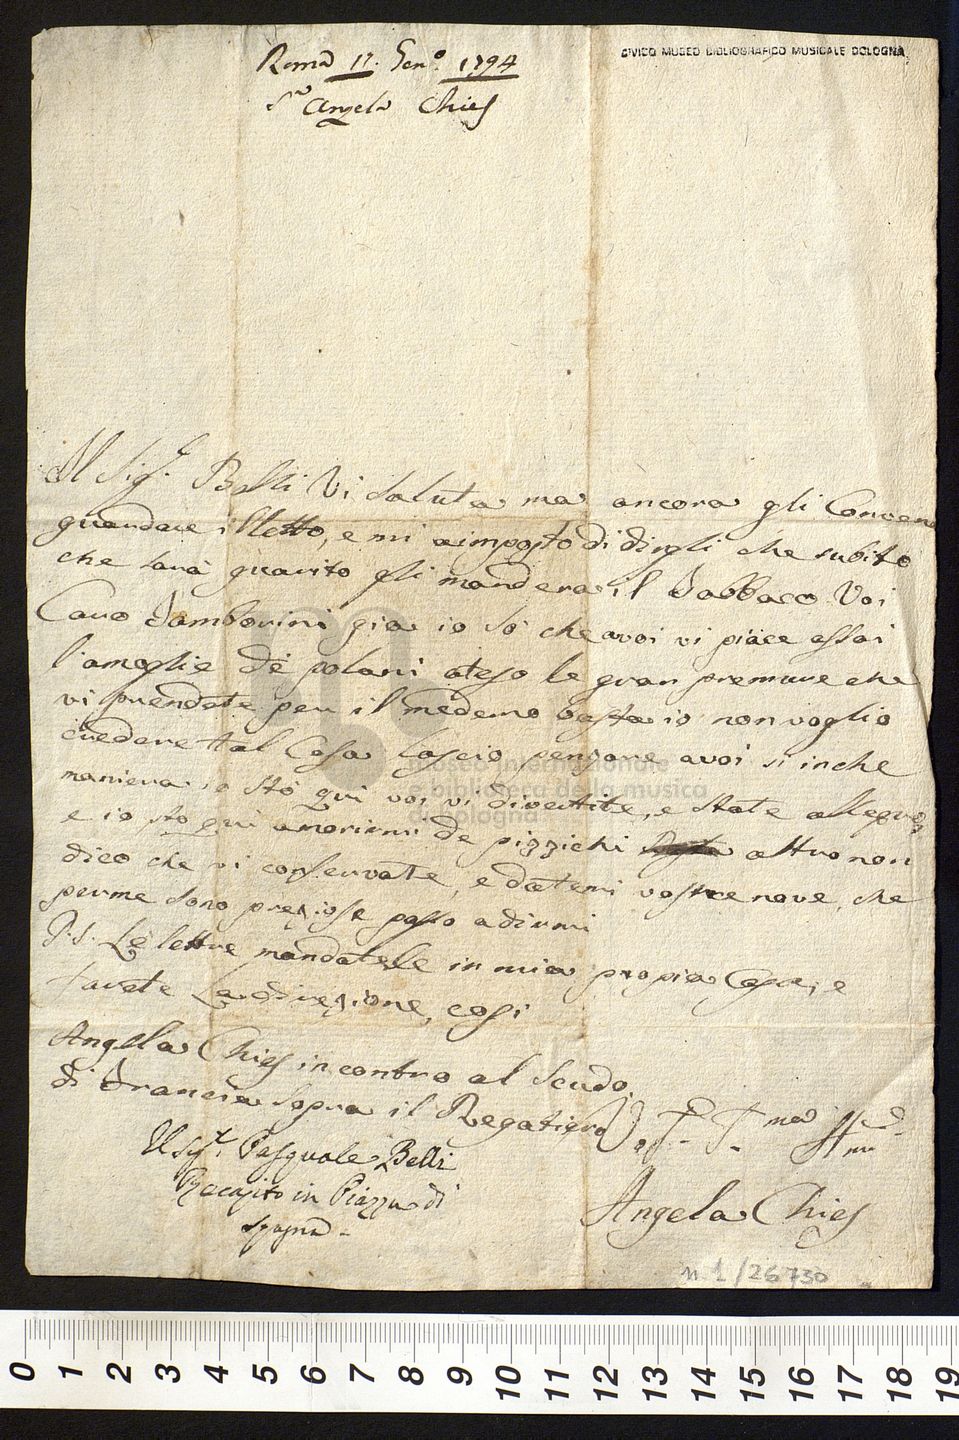 CIVICO MUSEO BIBLIOGRAFICO MUSICALE BOLOGNA
Roma 11. Gen.o 1794
S.ra Angela Chies
Il Sig.r Belli Vi saluta ma ancora gli Conviene
guardare il letto, e mi a imposto di dirgli che subito
che sarà guarito gli manderà il Tabbaco Voi
Caro Tamborini gia io só che avoi vi piace assai
l'amoglie dé polani ateso le gran premure che
vi prendete per il medemo basta io non voglio
credere tal Cosa lascio pensare avoi si inche
maniera io stó qui voi vi divertite, e state allegro
e io sto qui amorirmi de pizzichi altro non
dico che vi conservate, e datemi vostre nove, che
perme sono preziose passo adirmi
P.S. Le lettre mandatele in mia propia Casa, e
farete La direzione, cosi
Angela Chies incontro al Scudo
di Francia sopra il Regatiero
Il Sig.r Pasquale Belli
Recapito in Piazza di
Spagna
Angela Chies
n. 1/26730
museo internazionale
e biblioteca della musica
di bologna
0 1 2 3 4 5 6 7 8 9 10 11 12 13 14 15 16 17 18 19